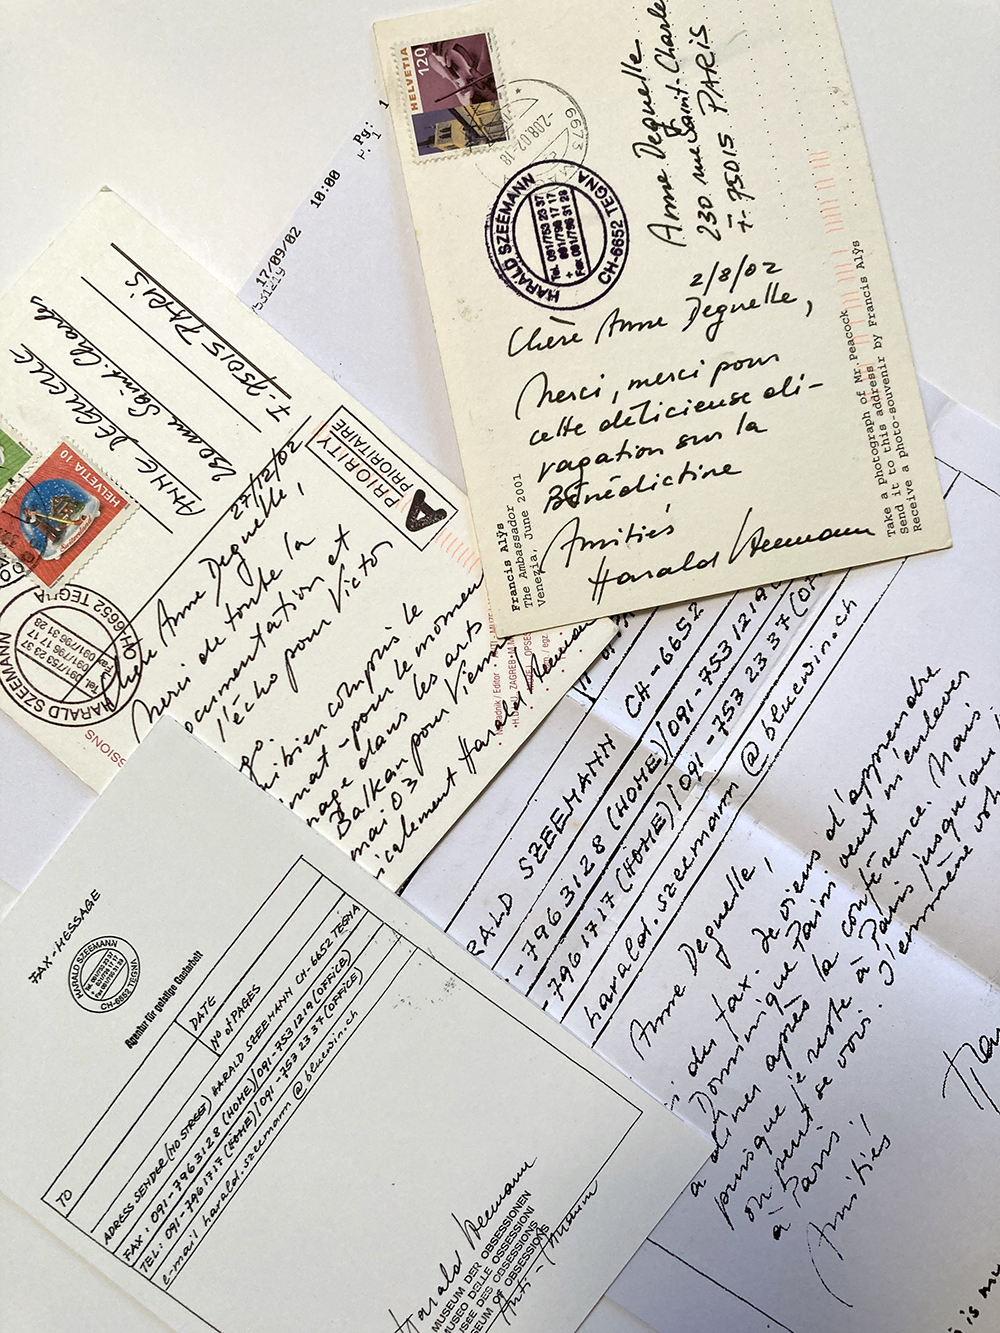 HELVETIA 120
6673
-2.08.02-18
HARALD SZEEMANN
Tel. 091/753 23 37
+ 091/796 17 17
Fax 091/796 31 28
CH-6652 TEGNA
Anne Deguelle
230 rue Saint-Charles
F-75015 PARIS
2/8/02
Chère Anne Deguelle,
Merci, merci pour
cette délicieuse di-
vagation sur la
Bénédictine
Amitiés
Harald Szeemann
Francis Alÿs
The Ambassador
Venezia, June 2001
Take a photograph of Mr. Peacock
Send it to this address
Receive a photo-souvenir by Francis Alÿs
17/09/02
10:00
Pg: 1
ANNE DEGUELLE
Saint. Charles
F-75015 PARIS
HELVETIA 10
A PRIORITY
PRIORITAIRE
HARALD SZEEMANN
Tel. 091/753 23 37
091/796 17 17
Fax 091/796 31 28
CH-6652 TEGNA
27/12/02
Chère Anne Deguelle,
Merci de toute la
documentation et
l'écho pour Victo
bien compris le
pour le moment
dans les arts
Balkan pour Vienne
mai 03
Harald Szeemann
FAX-MESSAGE
HARALD SZEEMANN
Tel. 091/753 23 37
091/796 17 17
Fax 091/796 31 28
CH-6652 TEGNA
Agentur für geistige Gastarbeit
DATE
No of PAGES
TO
ADRESS SENDER (NO STREET) HARALD SZEEMANN CH-6652 TEGNA
FAX: 091-7963128 (HOME)/091-7531219 (OFFICE)
TEL: 091-7961717 (HOME)/091-753 2337 (OFFICE)
e-mail harald.szeemann@bluewin.ch
Harald Szeemann
MUSEUM DER OBSESSIONEN
MUSEO DELLE OSSESSIONI
MUSEE DES OBSESSIONS
MUSEUM OF OBSESSIONS
RALD SZEEMANN CH-6652
-7963128 (HOME)/091-7531219 (OF
-7961717 (HOME)/091-753 2337 (OF
harald.szeemann@bluewin.ch
Anne Deguelle,
des fax. Je viens d'apprendre
Dominique Païni veut m'enlever
dîner après la conférence. Mais
puisque je reste à Paris jusqu'au
on peut se voir. J'emmène
à Paris!
Amitiés